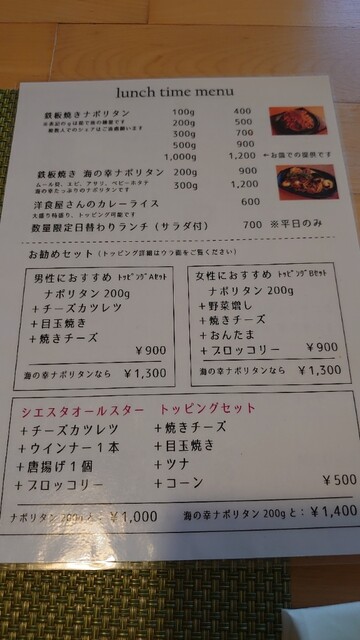 lunch time menu
鉄板焼きナポリタン 100g 400
200g 500
300g 700
500g 900
1,000g 1,200 ←お皿での提供です
複数人でのシェアはご遠慮願います
鉄板焼き 海の幸ナポリタン 200g 900
300g 1,200
ムール貝、エビ、アサリ、ベビーホタテ
海の幸たっぷりのナポリタンです
洋食屋さんのカレーライス 600
大盛り特盛り、トッピング可能です
数量限定日替わりランチ（サラダ付） 700 ※平日のみ
お勧めセット（トッピング詳細はウラ面をご覧ください）
男性におすすめ トッピングAセット
ナポリタン 200g
＋チーズカツレツ
＋目玉焼き
＋焼きチーズ
￥900
海の幸ナポリタンなら ￥1,300
女性におすすめ トッピングBセット
ナポリタン 200g
＋野菜増し
＋焼きチーズ
＋おんたま
＋ブロッコリー ￥900
海の幸ナポリタンなら ￥1,300
シエスタオールスター トッピングセット
＋チーズカツレツ ＋焼きチーズ
＋ウインナー１本 ＋目玉焼き
＋唐揚げ１個 ＋ツナ
＋ブロッコリー ＋コーン ￥500
ナポリタン 200g と： ￥1,000 海の幸ナポリタン 200g と： ￥1,400